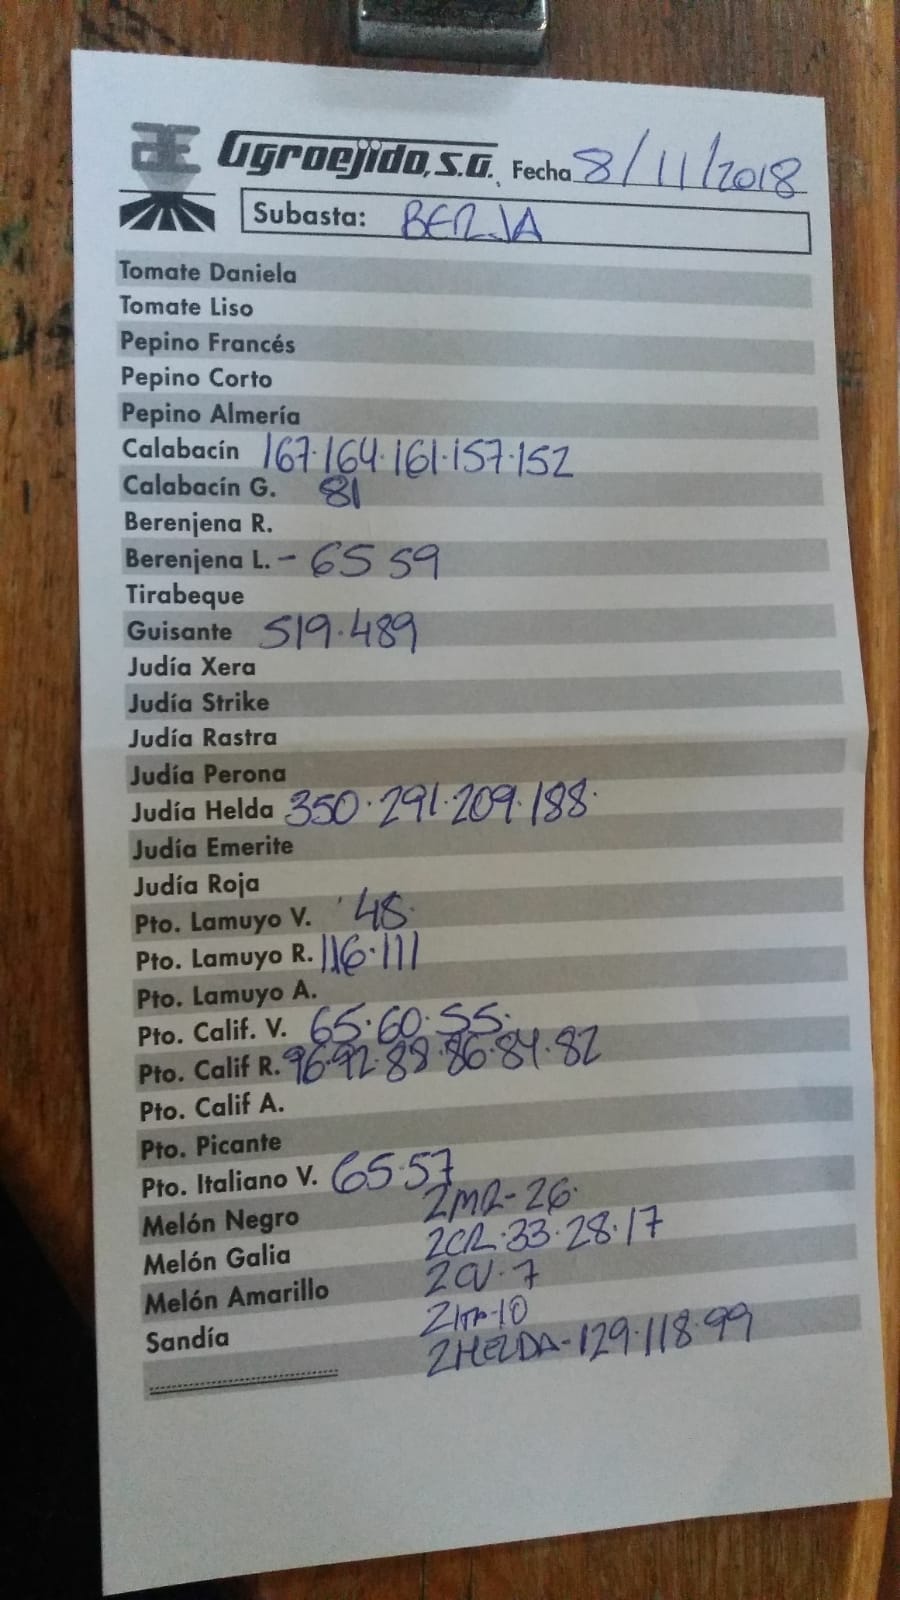 Agroejido, S.A. Fecha 8/11/2018
Subasta: BERJA
Tomate Daniela
Tomate Liso
Pepino Francés
Pepino Corto
Pepino Almería
Calabacín 167·164·161·157·152
Calabacín G. 81
Berenjena R.
Berenjena L. - 65 59
Tirabeque
Guisante 519·489
Judía Xera
Judía Strike
Judía Rastra
Judía Perona
Judía Helda 350·291·209·188·
Judía Emerite
Judía Roja
Pto. Lamuyo V. 48·
Pto. Lamuyo R. 116·111
Pto. Lamuyo A.
Pto. Calif. V. 65·60·55·
Pto. Calif R. 96·92·88·86·84·82
Pto. Calif A.
Pto. Picante
Pto. Italiano V. 65·57
Melón Negro 2MR-26·
Melón Galia 2CR·33·28·17
Melón Amarillo 2CV·7
Sandía 2ITA-10
2HELDA-129·118·99